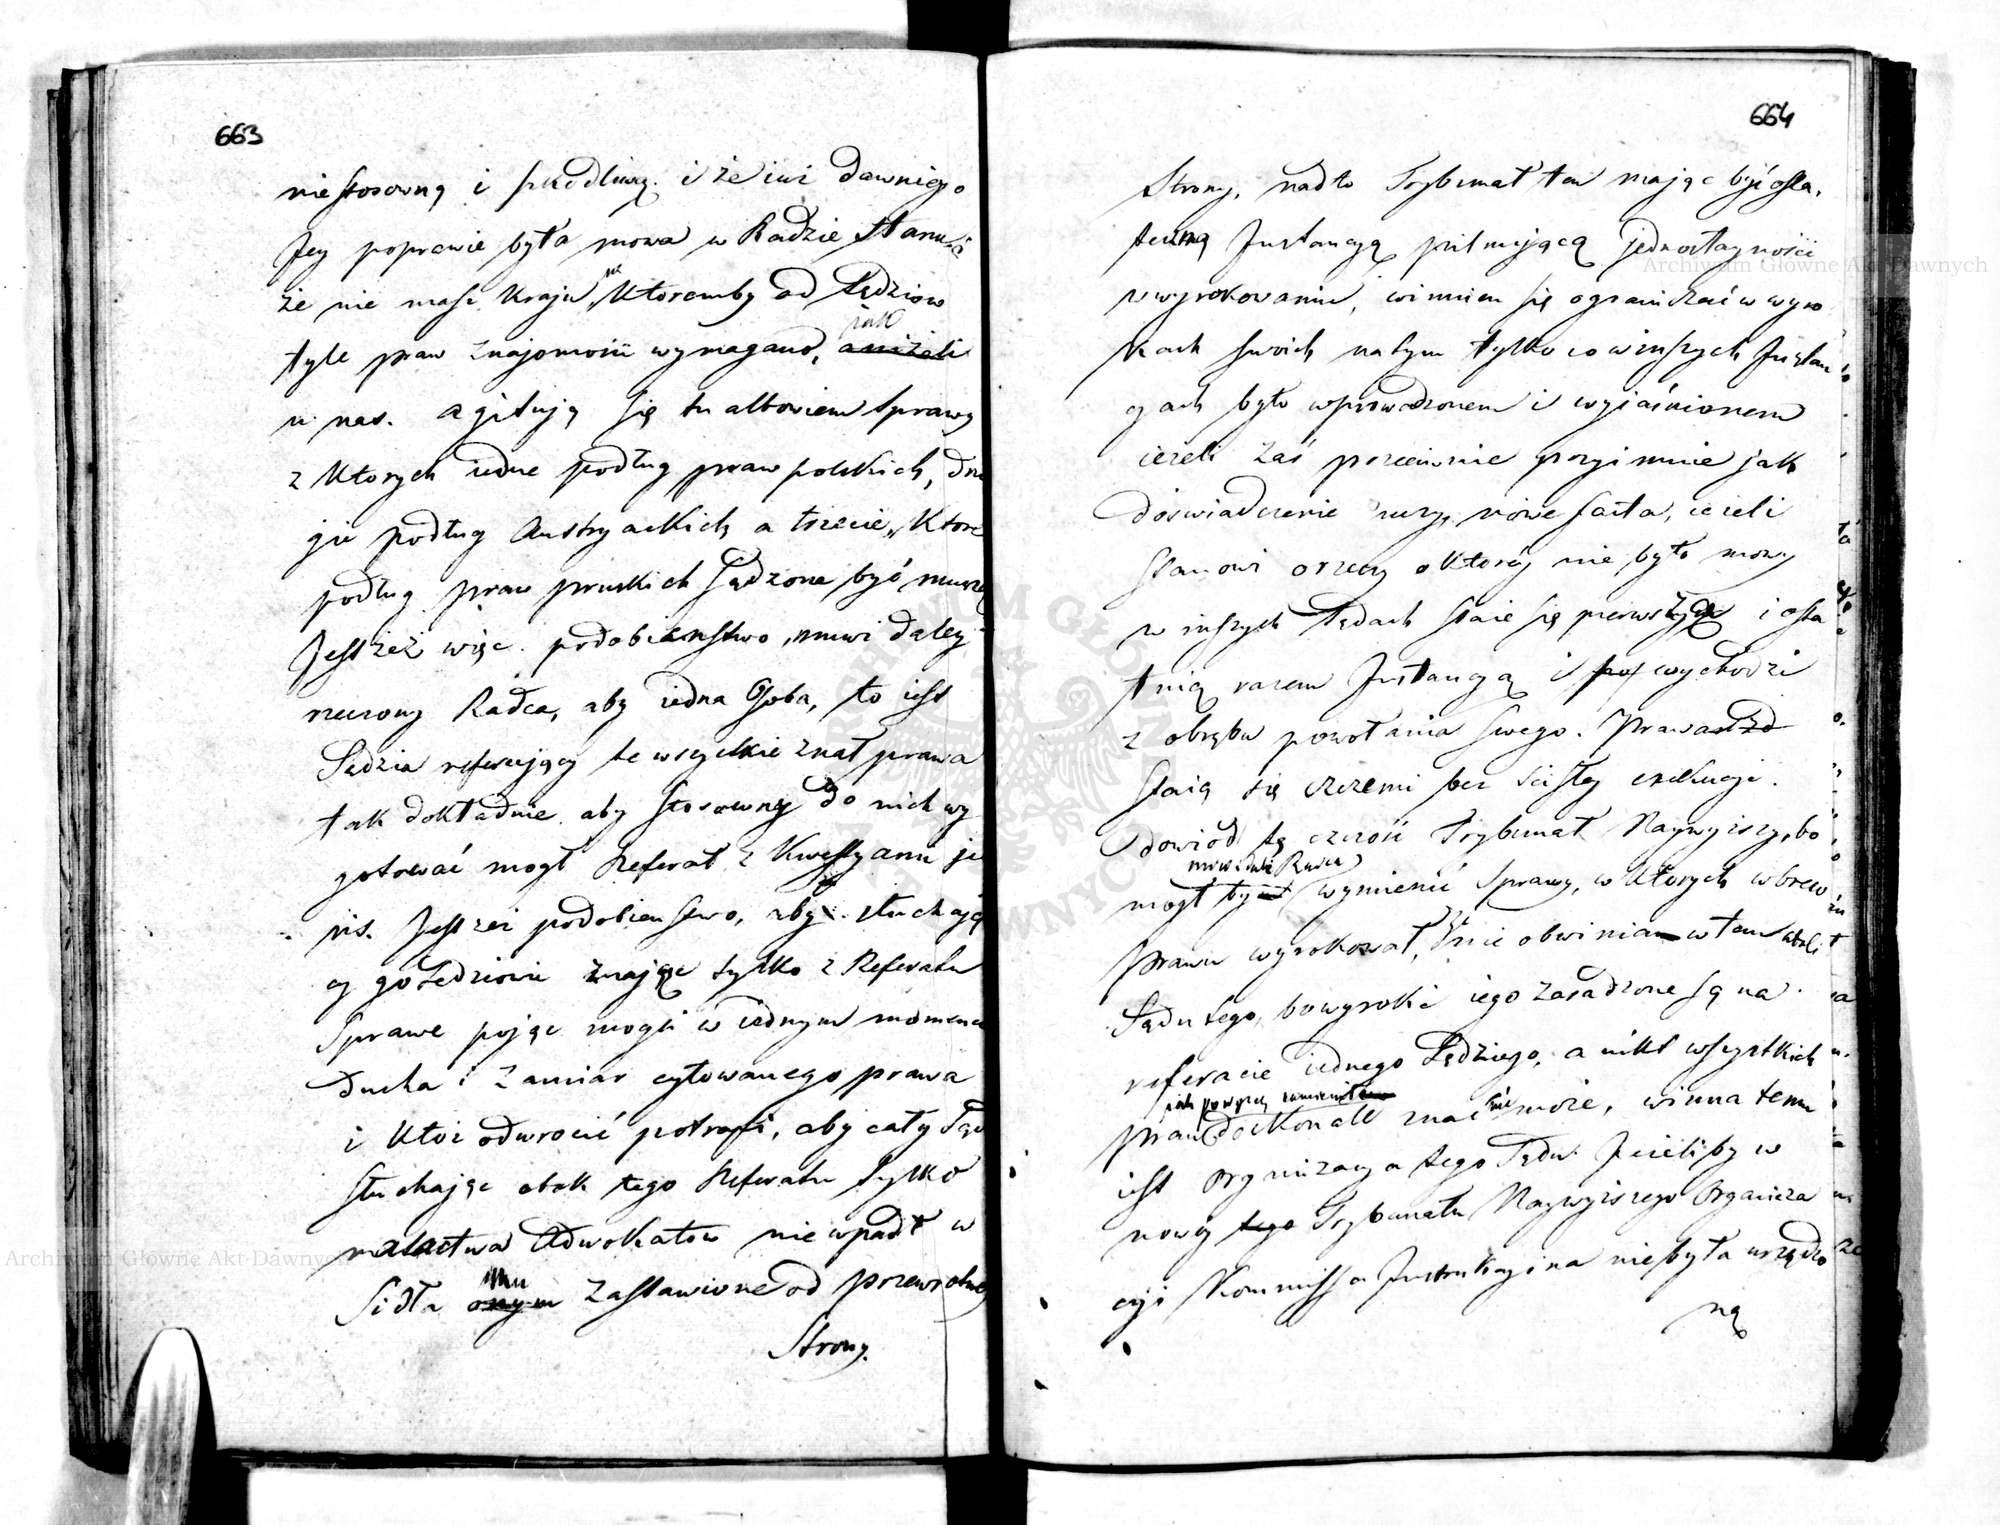 663
niestosowną i szkodliwą. i że iuż dawniey o
Jey poprawie była mowa w Radzie Stanu i
że nie masz Kraju, w Ktoremby od Sędziow
tyle praw znajomości wymagano, aniżeli jak
u nas. agitują się tu albowiem Sprawy
z Ktorych iedne podług praw polskich, dru
gie podług Austryackich a trzecie, Ktore
podług praw pruskich sądzone być muszą
Jestżeż więc podobieństwo, mowi daley
rzeczony Radca, aby iedna Osoba, to iest
Sędzia referujący te wszystkie znał prawa
tak dokładnie aby stosowny do nich wy
gotować mogł Referat z Kwestyami je
nis. Jestżeż podobieństwo, aby słuchają
cy go Sędziowie znając tylko z Referatu
Sprawę pojąc mogli w iednym momencie
Ducha i zamiar cytowanego prawa
i Ktoż odwrocić potrafi, aby cały Sąd
słuchając obok tego Referatu tylko
matactwa Adwokatow nie wpadł w
Sidła onym mu zastawione od przewrotney
Strony.
664
Strony, nadto Trybunał ten mając być osta,
teczną Instancyą pilnującą jednostayności
w wyrokowaniu, winien się ograniczać w wyro
kach swoich na tym tylko co w inszych Instan
cyach było wprowadzonem i wyiaśnionem
ieżeli zaś przeciwnie przyimuie jak
doświadczenie uczy, nowe facta, ieżeli
stanowi o rzeczy o Ktorey nie było mowy
w inszych Sądach staie się pierwszą i osta
tnią razem Instancyą i wychodzi
z obrębu powołania swego. Prawa
staią się czczemi bez ścisłey exekucyi.
Dowiodł tę czczość Trybunał Naywyższy, bo
mowi daley Radca
mogłby wymienić Sprawy, w Ktorych wbrew
Prawu wyrokował, że nie obwinia w tem wcale
Sądu tego, bo wyroki iego zasadzone są na
referacie iednego Sędziego, a nikt wszystkich
jak powyżey
praw doskonale znać nie może, winna temu
iest Organizacya tego Sądu. Jeżeliby w
nowey tego Trybunału Naywyższego Organiza
cyi Kommissya Instrukcyina nie była urządzo
ną
Archiwum Główne Akt Dawnych
Archiwum Główne Akt Dawnych
ARCHIWUM GŁÓWNE AKT DAWNYCH